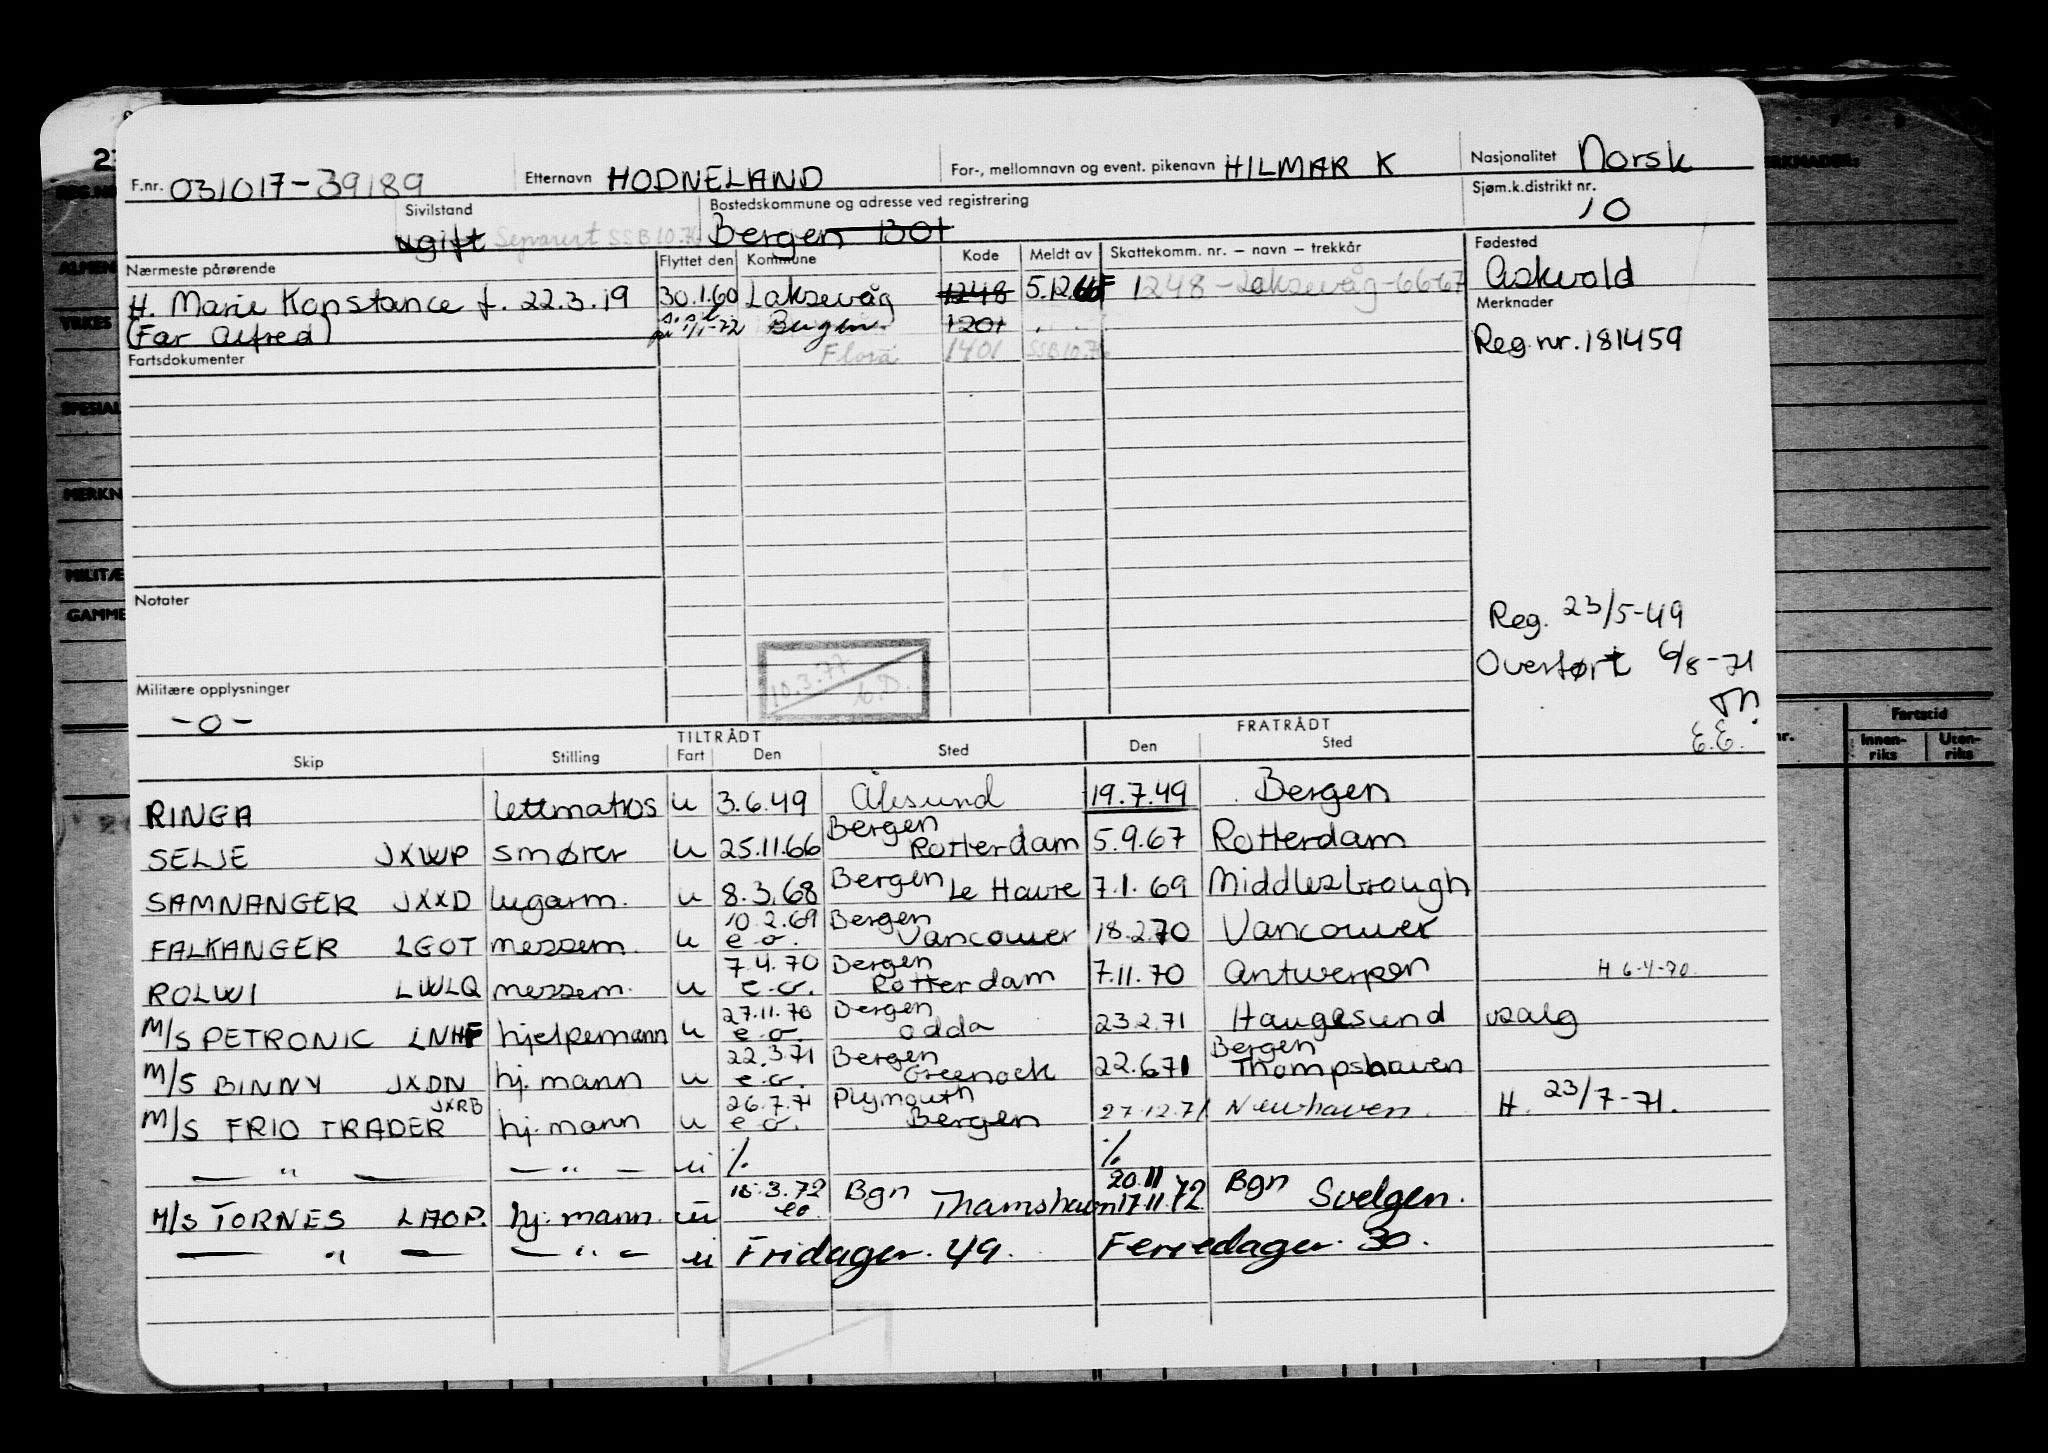 F.nr. 031017-39189 Etternavn HODNELAND For-, mellomnavn og event. pikenavn HILMAR K Nasjonalitet Norsk
Sivilstand Bostedskommune og adresse ved registrering Sjøm.k.distrikt nr.
ugift Separert SSB 10.76 Bergen 1301 10
Nærmeste pårørende Flyttet den Kommune Kode Meldt av Skattekomm. nr. – navn – trekkår Fødested
H. Marie Konstance f. 22.3.19 30.1.60 Laksevåg 1248 5.12.66 F 1248 - Laksevåg - 66-67 Askvold
(Far Alfred) 1/1-72 Bergen 1201 Merknader
Fartsdokumenter Flora 1401 SSB 10.76 Reg.nr. 181459
Notater
Reg. 23/5-49
10.3.77
Overført 6/8-71
Militære opplysninger
-0-
E.E.
TILTRÅDT FRATRÅDT
Skip Stilling Fart Den Sted Den Sted
RINGA lettmatros u 3.6.49 Ålesund 19.7.49 Bergen
SELJE JXWP smører u 25.11.66 Bergen Rotterdam 5.9.67 Rotterdam
SAMNANGER JXXD lugarm. u 8.3.68 Bergen Le Havre 7.1.69 Middlesbrough
FALKANGER LGOT messem. u 10.2.69 e.o. Bergen Vancouver 18.2.70 Vancouver
ROLWI LWLQ messem. u 7.4.70 e.o. Bergen Rotterdam 7.11.70 Antwerpen H 6-4-70
M/S PETRONIC LNHF hjelpemann u 27.11.70 e.o. Bergen Odda 23.2.71 Haugesund valg
M/S BINNY JXDN hj.mann u 22.3.71 e.o. Bergen Greenock 22.6.71 Bergen Thompshaven
M/S FRIO TRADER JXRB hj.mann u 26.7.71 e.o. Plymouth Bergen 27.12.71 Newhaven. H. 23/7-71.
— " — — " — u ./. ./.
M/S TORNES LAOP. hj.mann. u 18.3.72 eo. Bgn Thamshavn 20.11 17.11.72 Bgn Svelgen.
— " — — " — u Fridager. 49. Feriedager. 30.
Fartstid
Innen-riks Uten-riks